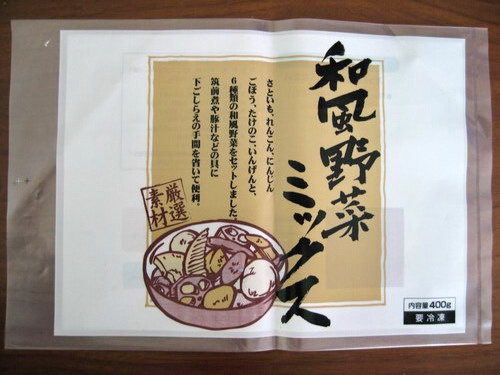 和風野菜
ミックス
さといも、れんこん、にんじん
ごぼう、たけのこ、いんげんと、
6種類の和風野菜をセットしました。
筑前煮や豚汁などの具に
下ごしらえの手間を省いて便利。
厳選
素材
内容量400g
要冷凍